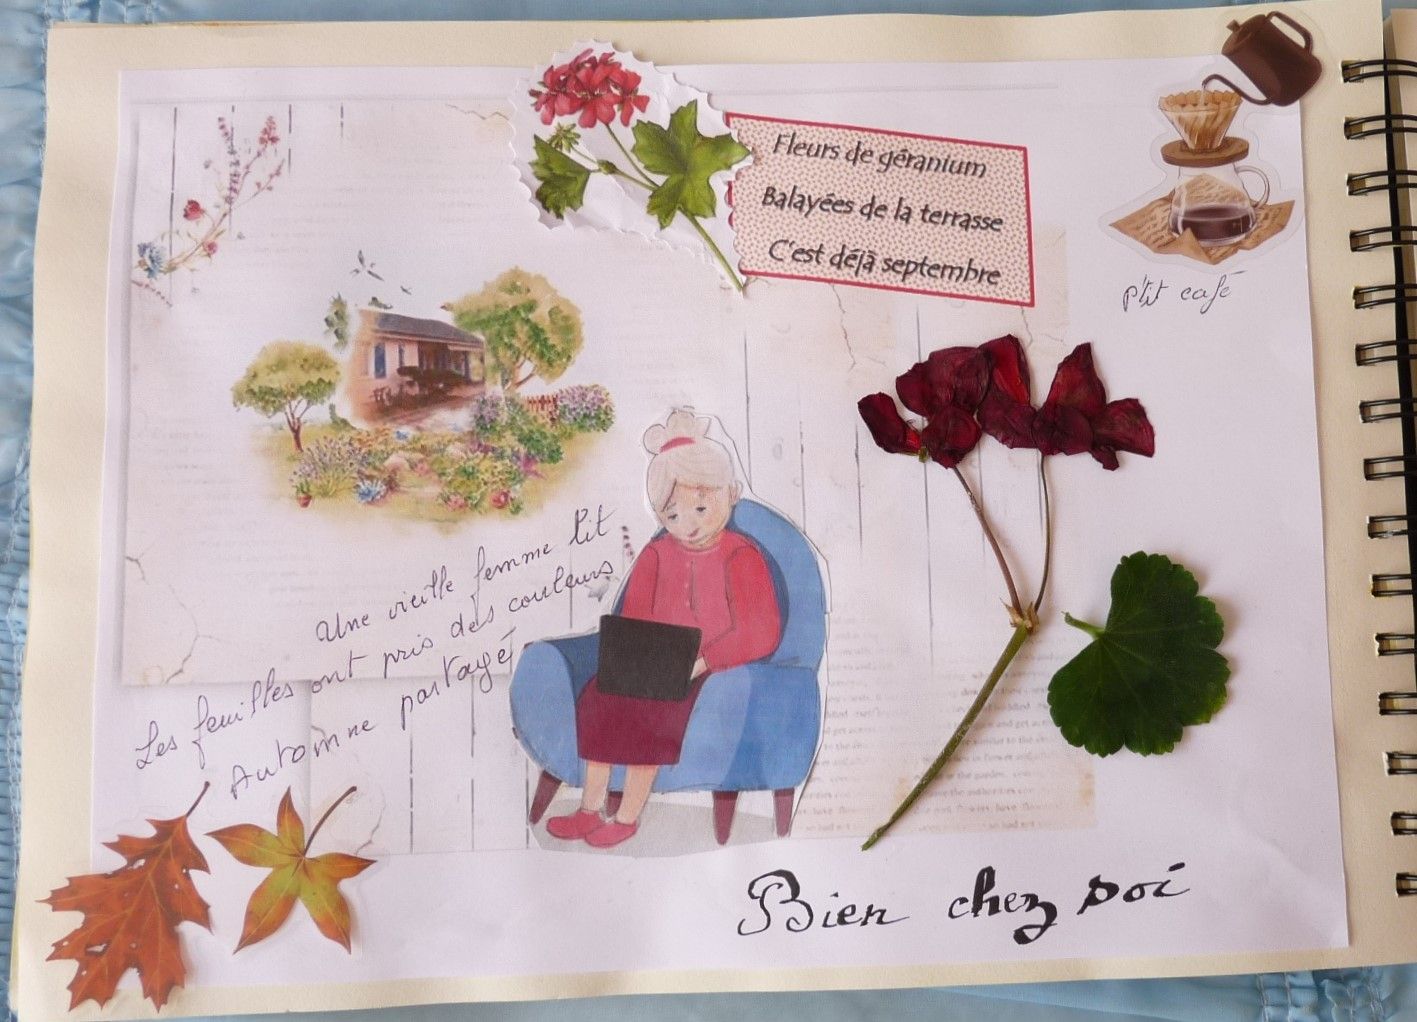 Fleurs de géranium
Balayées de la terrasse
C'est déjà septembre
p'tit café
Une vieille femme lit
Les feuilles ont pris des couleurs
Automne partagé
Bien chez soi